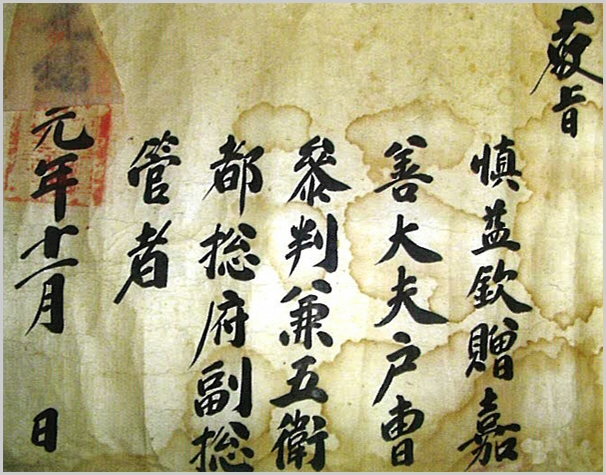 敎旨
慎益欽贈嘉
善大夫戶曹
參判兼五衛
都総府副総
管者
元年十一月　日